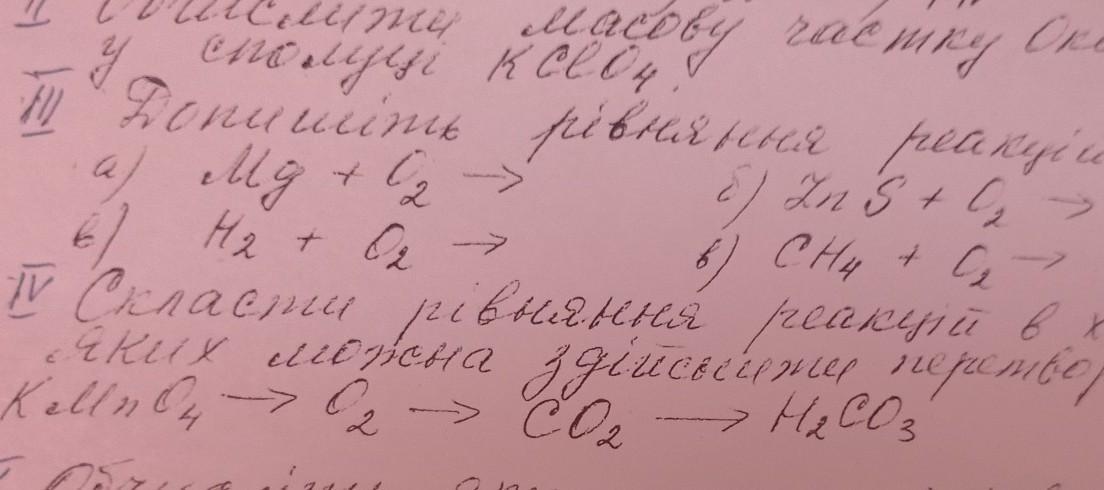 II Обчислити масову частку Окс
у сполуці KClO₄.
III Допишіть рівняння реакцій
а) Mg + O₂ → б) ZnS + O₂ →
в) H₂ + O₂ → в) CH₄ + O₂ →
IV Скласти рівняння реакцій в х
яких можна здійснити перетвор
KMnO₄ → O₂ → CO₂ → H₂CO₃